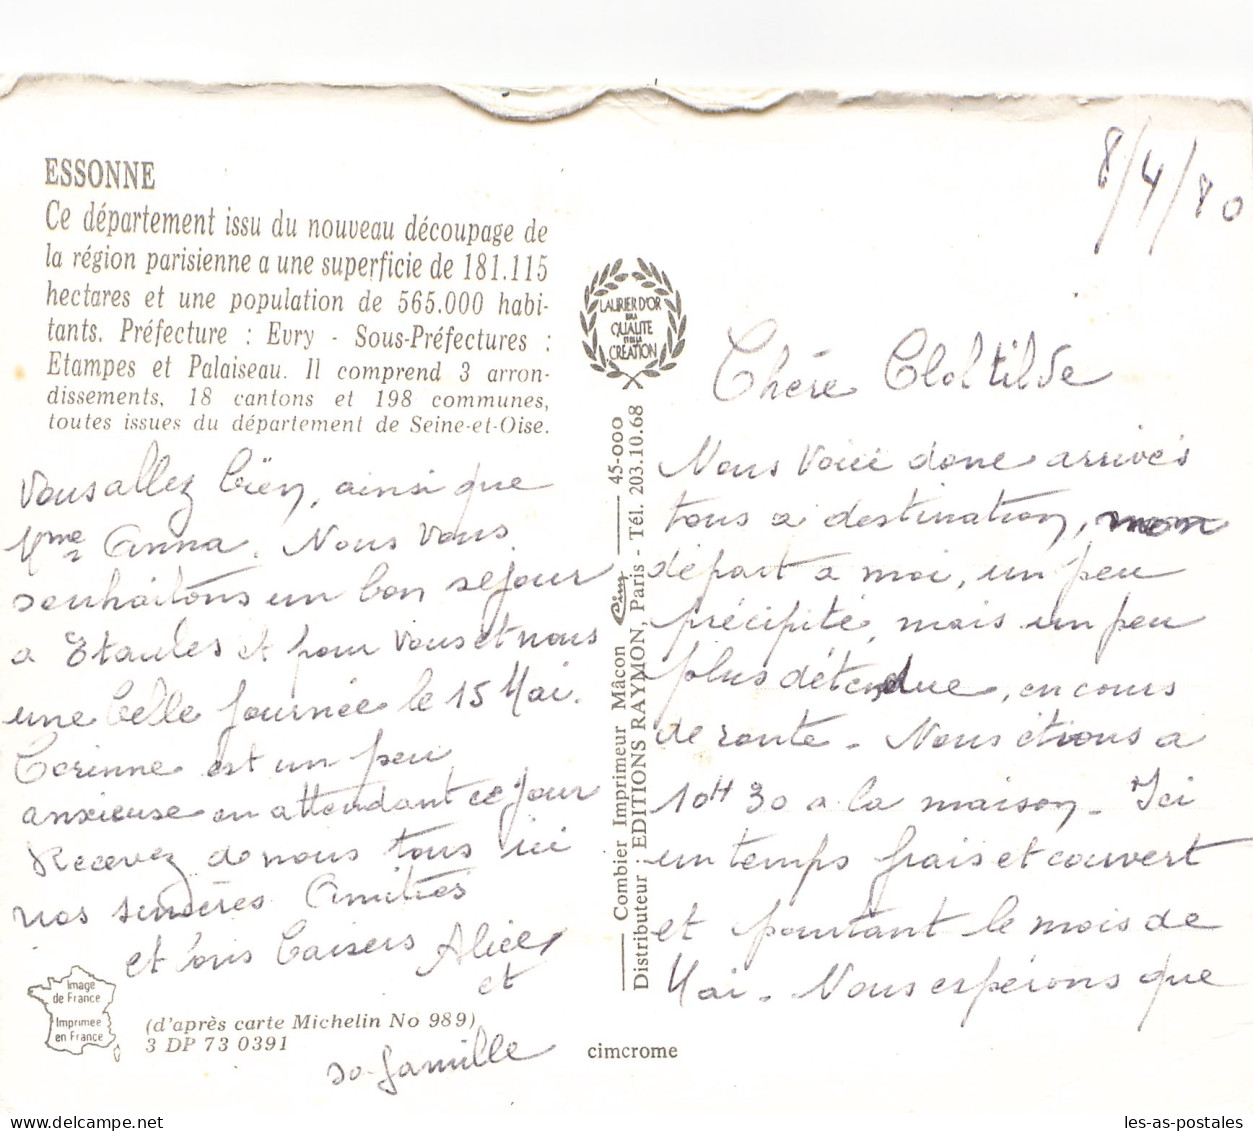 8/4/80
ESSONNE
Ce département issu du nouveau découpage de
la région parisienne a une superficie de 181.115
hectares et une population de 565.000 habi-
tants. Préfecture : Evry - Sous-Préfectures :
Etampes et Palaiseau. Il comprend 3 arron-
dissements, 18 cantons et 198 communes,
toutes issues du département de Seine-et-Oise.
LAURIER D'OR
DE LA
QUALITE
ET DE LA
CREATION
Combier Imprimeur Mâcon Cim 45-000
Distributeur : EDITIONS RAYMON, Paris - Tél. 203.10.68
Chère Cloltilde
Nous voici donc arrivés
tous a destination, mon
départ a moi, un peu
précipité, mais un peu
plus détendue, en cours
de route - Nous étions a
10H30 a la maison - Ici
un temps frais et couvert
et pourtant le mois de
Mai - Nous espérons que
Vous allez bien, ainsi que
Mme Anna. Nous vous
souhaitons un bon séjour
a Etaules et pour vous et nous
une belle journée le 15 Mai.
Corinne est un peu
anxieuse en attendant ce jour
Recevez de nous tous ici
nos sincères Amitiés
et bons baisers Alice
et
sa famille
Image
de France
Imprimée
en France
(d'après carte Michelin No 989)
3 DP 73 0391
cimcrome
les-as-postales